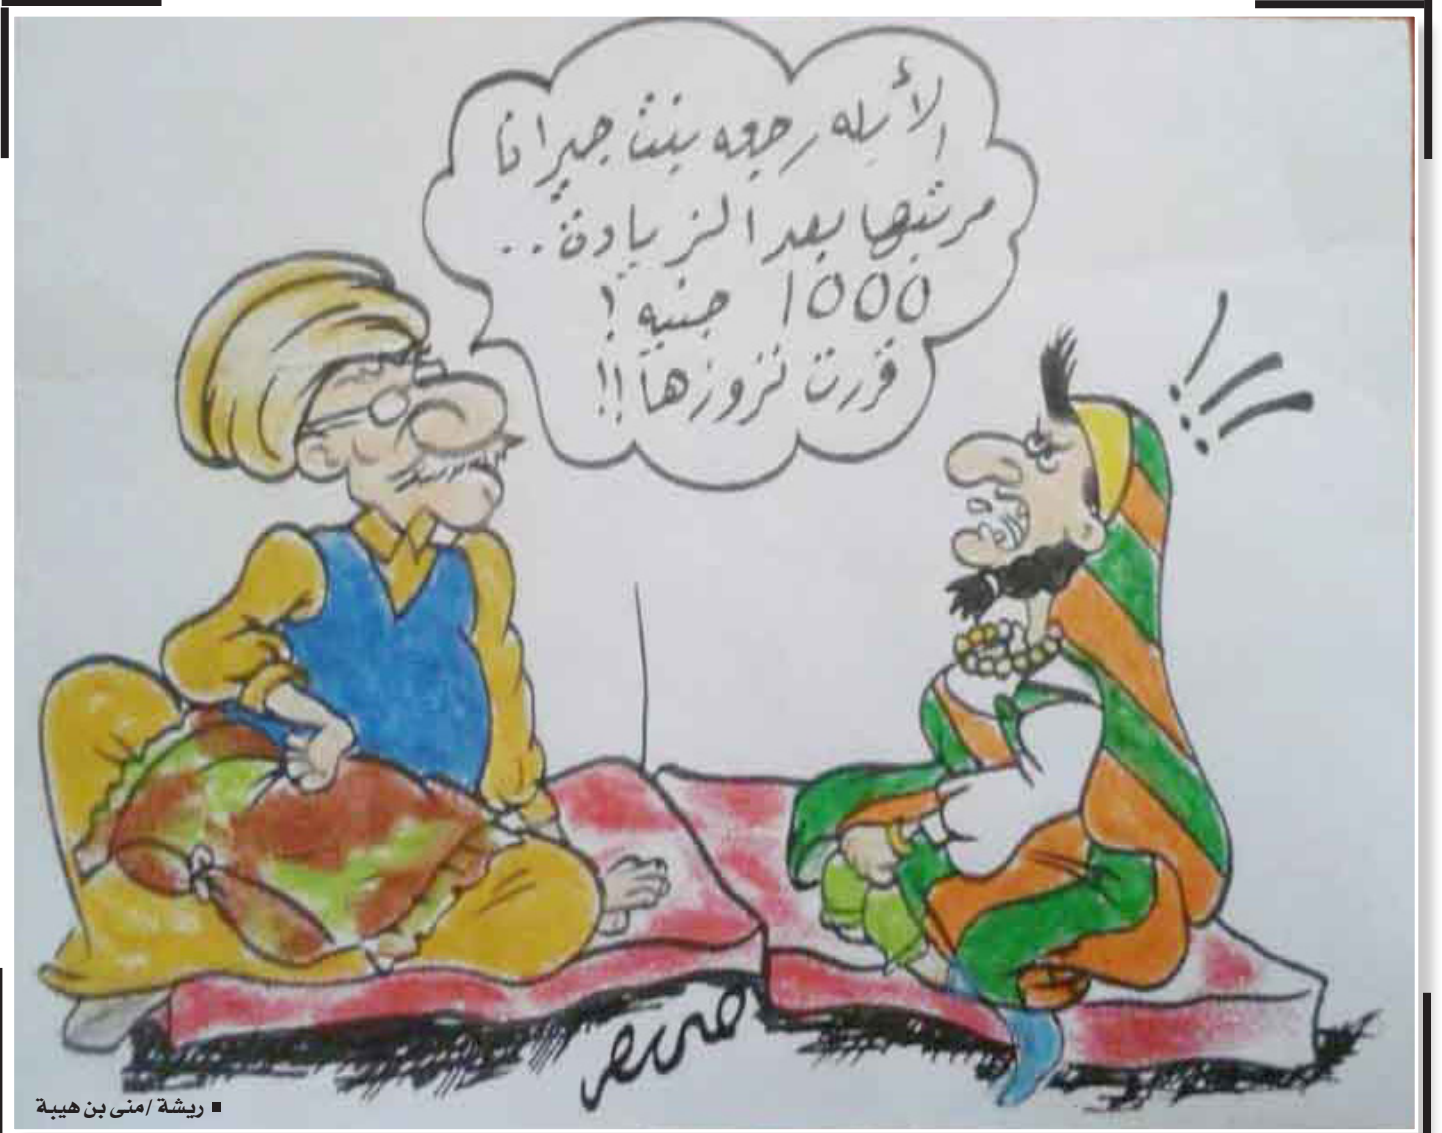 الأبله رجعه بنت جيرانا
مرتبها بعد الزيادة..
1000 جنيه !
قررت نزوزها !!
■ ريشة / منى بن هيبة